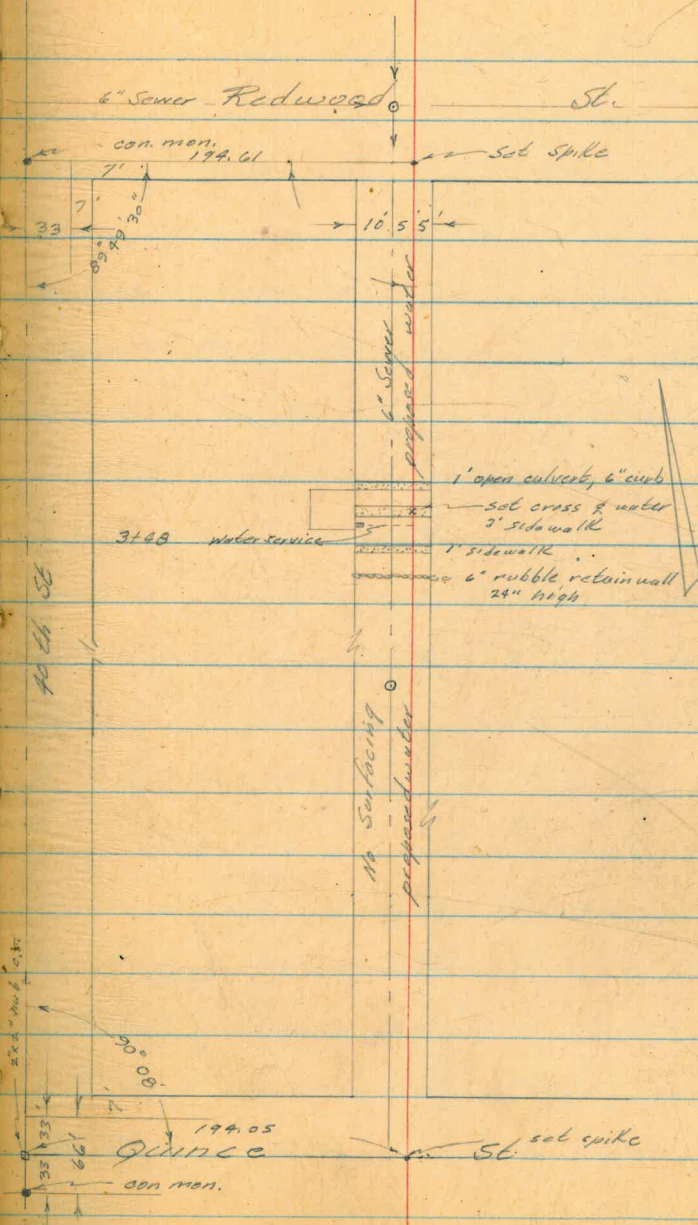 6" Sewer Redwood St.
con. mon.
194.61
set spike
7'
7'
33
89° 49' 30"
10' 5' 5'
6" Sewer
proposed water
1' open culvert, 6" curb
set cross & water
3' sidewalk
3+48 water service
1' sidewalk
6" rubble retain wall
24" high
40 th St
No Surfacing
proposed water
2"x2" hub
90° 08'
7'
194.05
33 33'
66'
Quince St.
set spike
con mon.